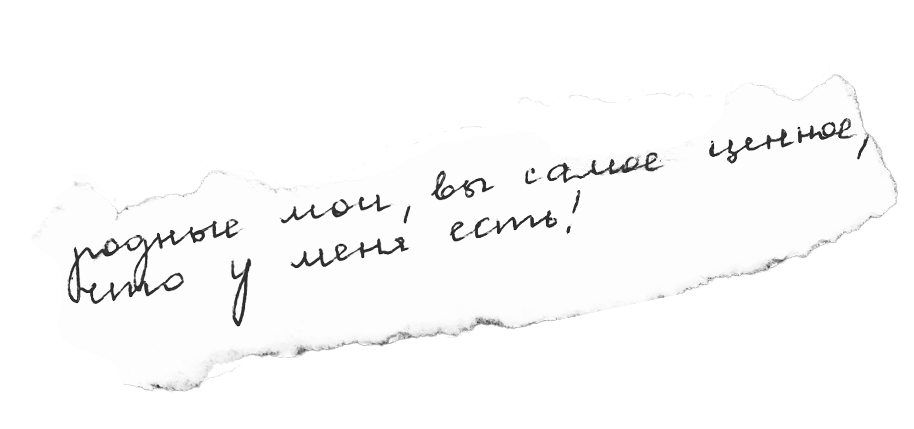 родные мои, вы самое ценное,
что у меня есть!